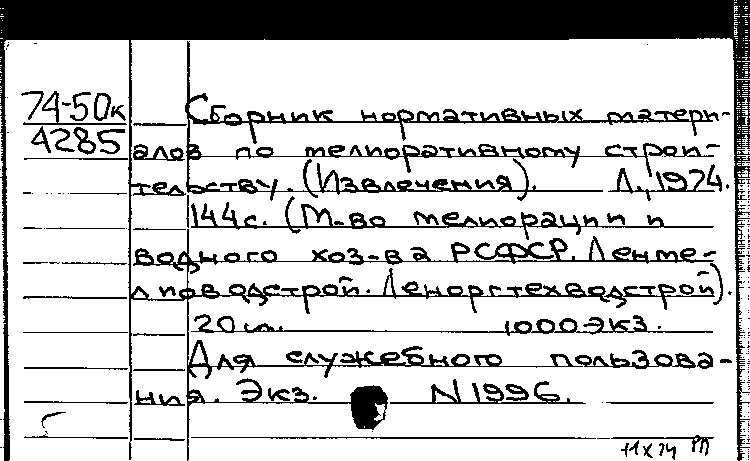 74-50к
4285
Сборник нормативных матери-
алов по мелиоративному строи-
тельству. (Извлечения). Л., 1974.
144 с. (М-во мелиорации и
водного хоз-ва РСФСР. Ленме-
лиоводстрой. Леноргтехводстрой).
20 см. 1000 экз.
Для служебного пользова-
ния. Экз. N 1996.